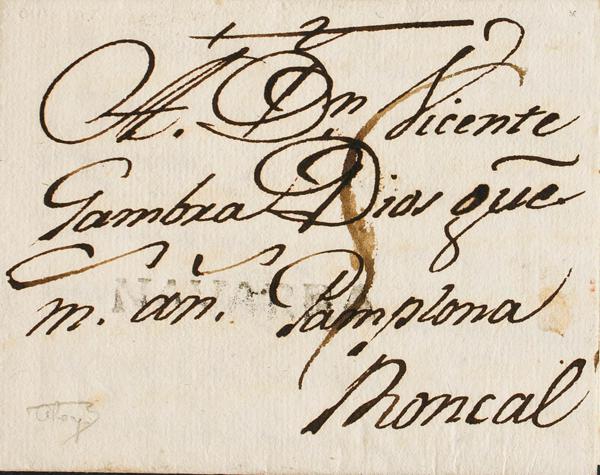 A. Dn Vicente
Gambra Dios gue
m. an. Pamplona
NAVARRA
Roncal